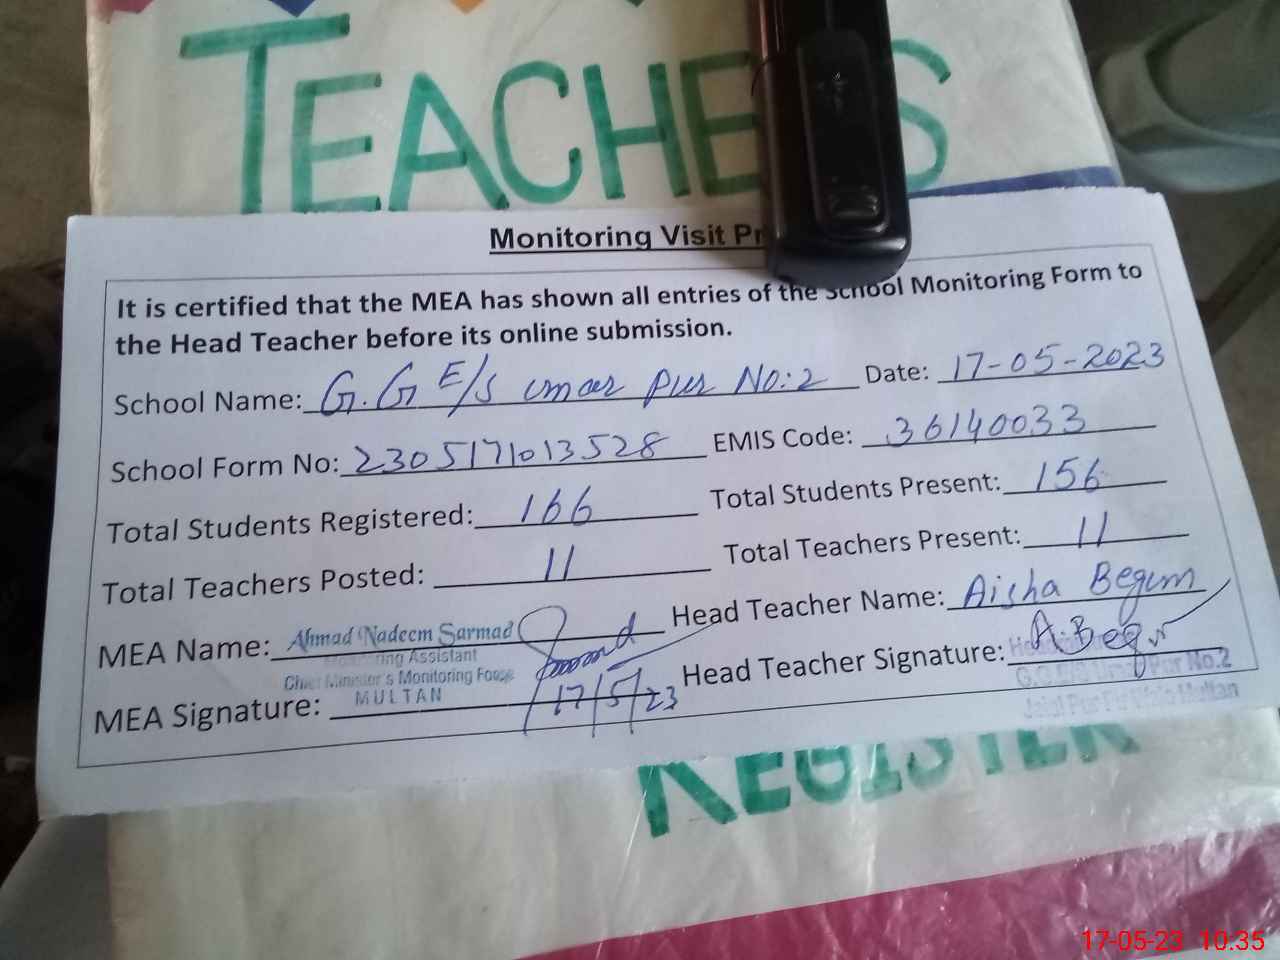 TEACHE S
Monitoring Visit Pr
It is certified that the MEA has shown all entries of the School Monitoring Form to
the Head Teacher before its online submission.
School Name: G.G E/S umar pur No:2 Date: 17-05-2023
School Form No: 2305171013528 EMIS Code: 36140033
Total Students Registered: 166 Total Students Present: 156
Total Teachers Posted: 11 Total Teachers Present: 11
MEA Name: Ahmad Nadeem Sarmad Head Teacher Name: Aisha Begum
Monitoring Assistant
Chief Minister's Monitoring Force
MULTAN
MEA Signature: 17/5/23 Head Teacher Signature: A.Begum
Pur No.2
Multan
REGISTER
17-05-23 10:35